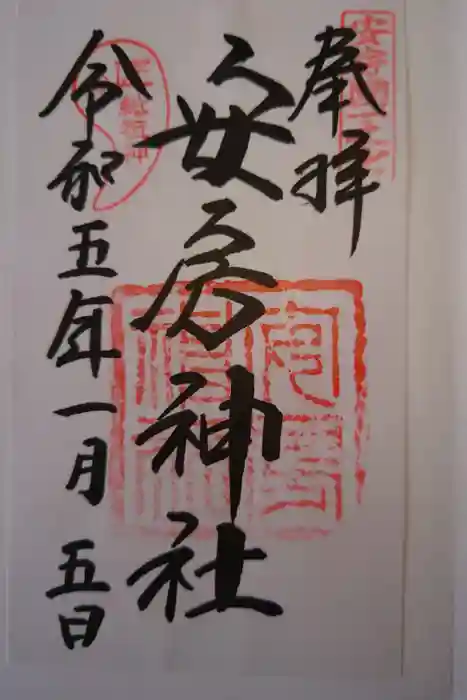 奉拝
安房神社
令和五年一月五日